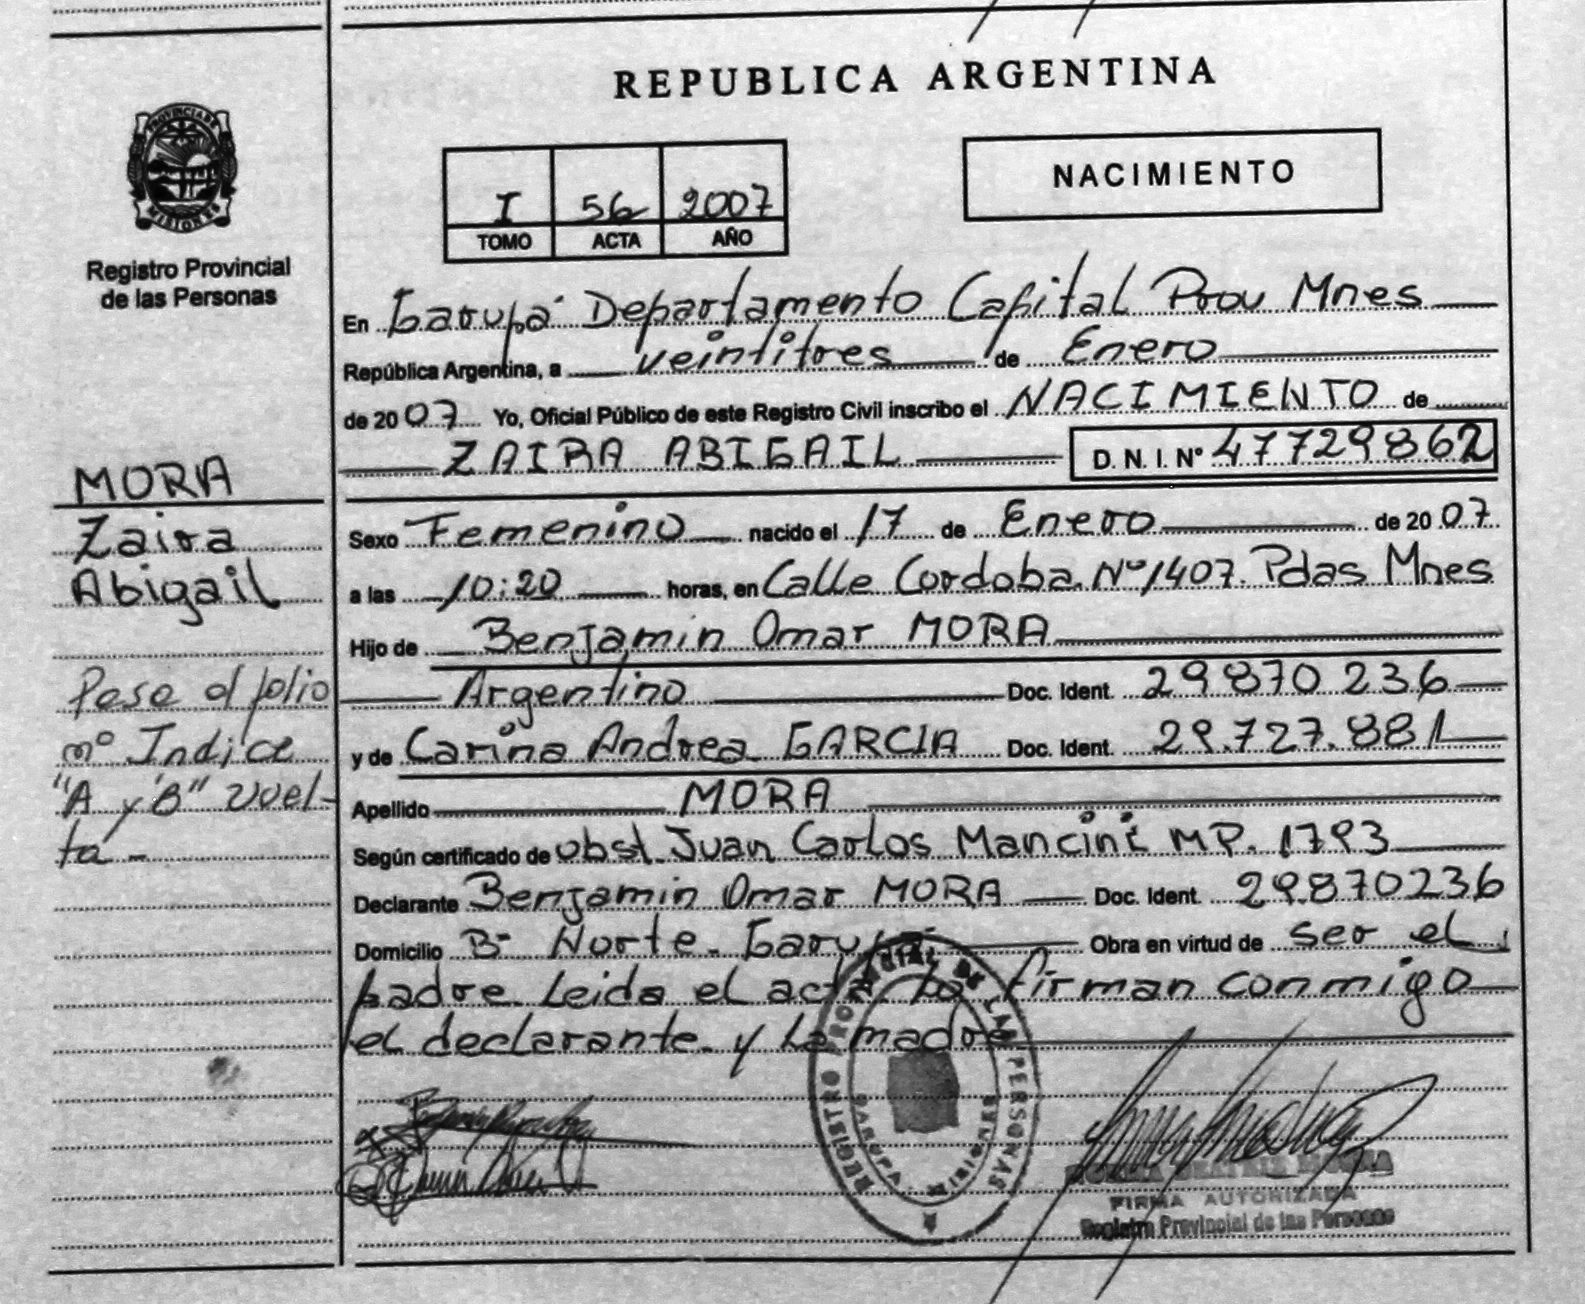 REPUBLICA ARGENTINA
PROVINCIA DE MISIONES
Registro Provincial
de las Personas
NACIMIENTO
I 56 2007
TOMO ACTA AÑO
En Garupá Departamento Capital Prov Mnes
República Argentina, a veintitres de Enero
de 2007 Yo, Oficial Público de este Registro Civil inscribo el NACIMIENTO de
ZAIRA ABIGAIL D.N.I. Nº 47729862
Sexo Femenino nacido el 17 de Enero de 2007
a las 10:20 horas, en Calle Cordoba Nº 1407. Pdas Mnes
Hijo de Benjamin Omar MORA
Argentino Doc. Ident. 29870236
y de Carina Andrea GARCIA Doc. Ident. 29.727.881
Apellido MORA
Según certificado de obst. Juan Carlos Mancini MP. 1793
Declarante Benjamin Omar MORA Doc. Ident. 29870236
Domicilio Bº Norte. Garupá Obra en virtud de ser el
padre. Leida el acta la firman conmigo
el declarante y la madre
MORA
Zaira
Abigail
Pase al folio
nº Indice
"A y B" vuel-
ta -
REGISTRO PROVINCIAL DE LAS PERSONAS
GARUPA MISIONES
FIRMA AUTORIZADA
Registro Provincial de las Personas